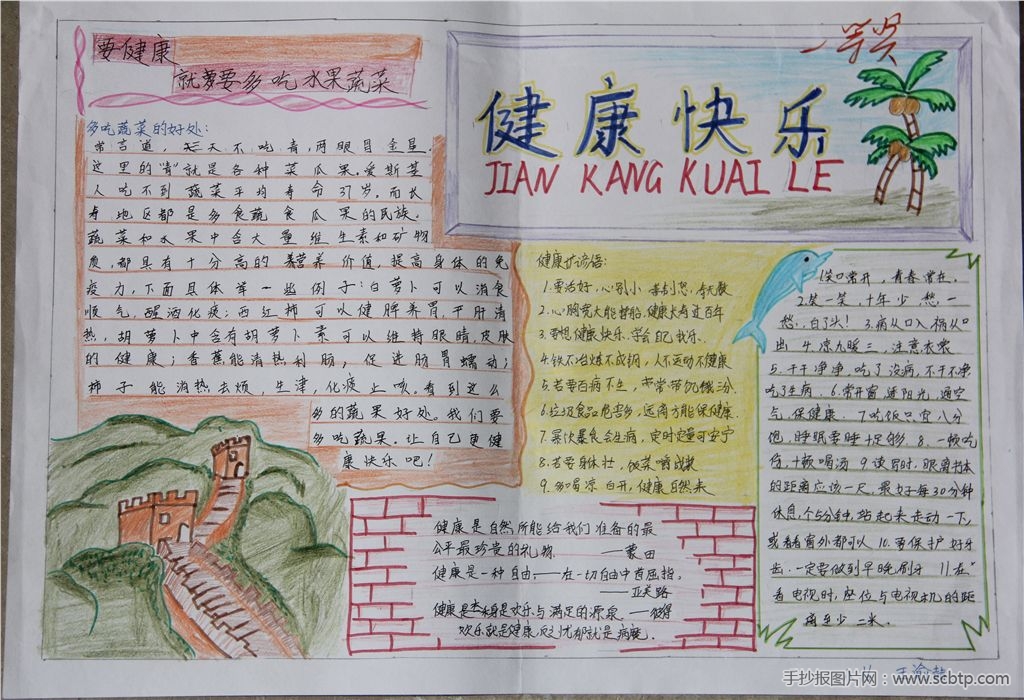 要健康
就要多吃水果蔬菜
一等奖
健康快乐
JIAN KANG KUAI LE
多吃蔬菜的好处:
常言道,三天不吃青,两眼冒金星.
这里的"青"就是各种菜瓜果.爱斯基
人吃不到蔬菜平均寿命37岁,而长
寿地区都是多食蔬食瓜果的民族.
蔬菜和水果中含大量维生素和矿物
质,都具有十分高的营养价值,提高身体的免
疫力,下面具体举一些例子:白萝卜可以消食
顺气,醒酒化痰;西红柿可以健脾养胃,平肝清
热,胡萝卜中含有胡萝卜素可以维持眼睛,皮肤
的健康;香蕉能清热利肠,促进肠胃蠕动;
柿子能消热去烦,生津,化痰止咳.看到这么
多的蔬果好处.我们要
多吃蔬果.让自己更健
康快乐吧!
健康谚语:
1.要活好,心别小
2.心胸宽大能撑船,健康长寿过百年
3.要想健康快乐,学会自己找乐.
4.铁不冶炼不成钢,人不运动不健康
5.若要百病不生,常带饥饿三分
6.垃圾食品危害多,远离方能保健康.
7.暴饮暴食会生病,定时定量可安宁
8.若要身体壮,饭菜嚼成浆
9.多喝凉白开,健康自然来
1.笑口常开,青春常在.
2.笑一笑,十年少,愁一
愁,白了头! 3.病从口入祸从口
出 4.凉九暖三,注意衣裳
5.干干净净,吃了没病,不干不净
吃了生病.6.常开窗,通阳光,通空
气,保健康.7.吃饭只宜八分
饱,睡眠要睡十足够.8.一顿吃
伤,十顿喝汤 9.读写时,眼离书本
的距离应该一尺.最好每30分钟
休息个5分钟,站起来走动一下,
或看看窗外都可以 10.要保护好牙
齿.一定要做到早晚刷牙 11.在
看电视时,座位与电视机的距
离至少二米.
健康是自然所能给我们准备的最
公平最珍贵的礼物 ——蒙田
健康是一种自由——在一切自由中首屈指.
——亚关路
健康是本身是欢乐与满足的源泉
欢乐就是健康,反之忧郁就是病魔.
手抄报图片网:www.scbtp.com